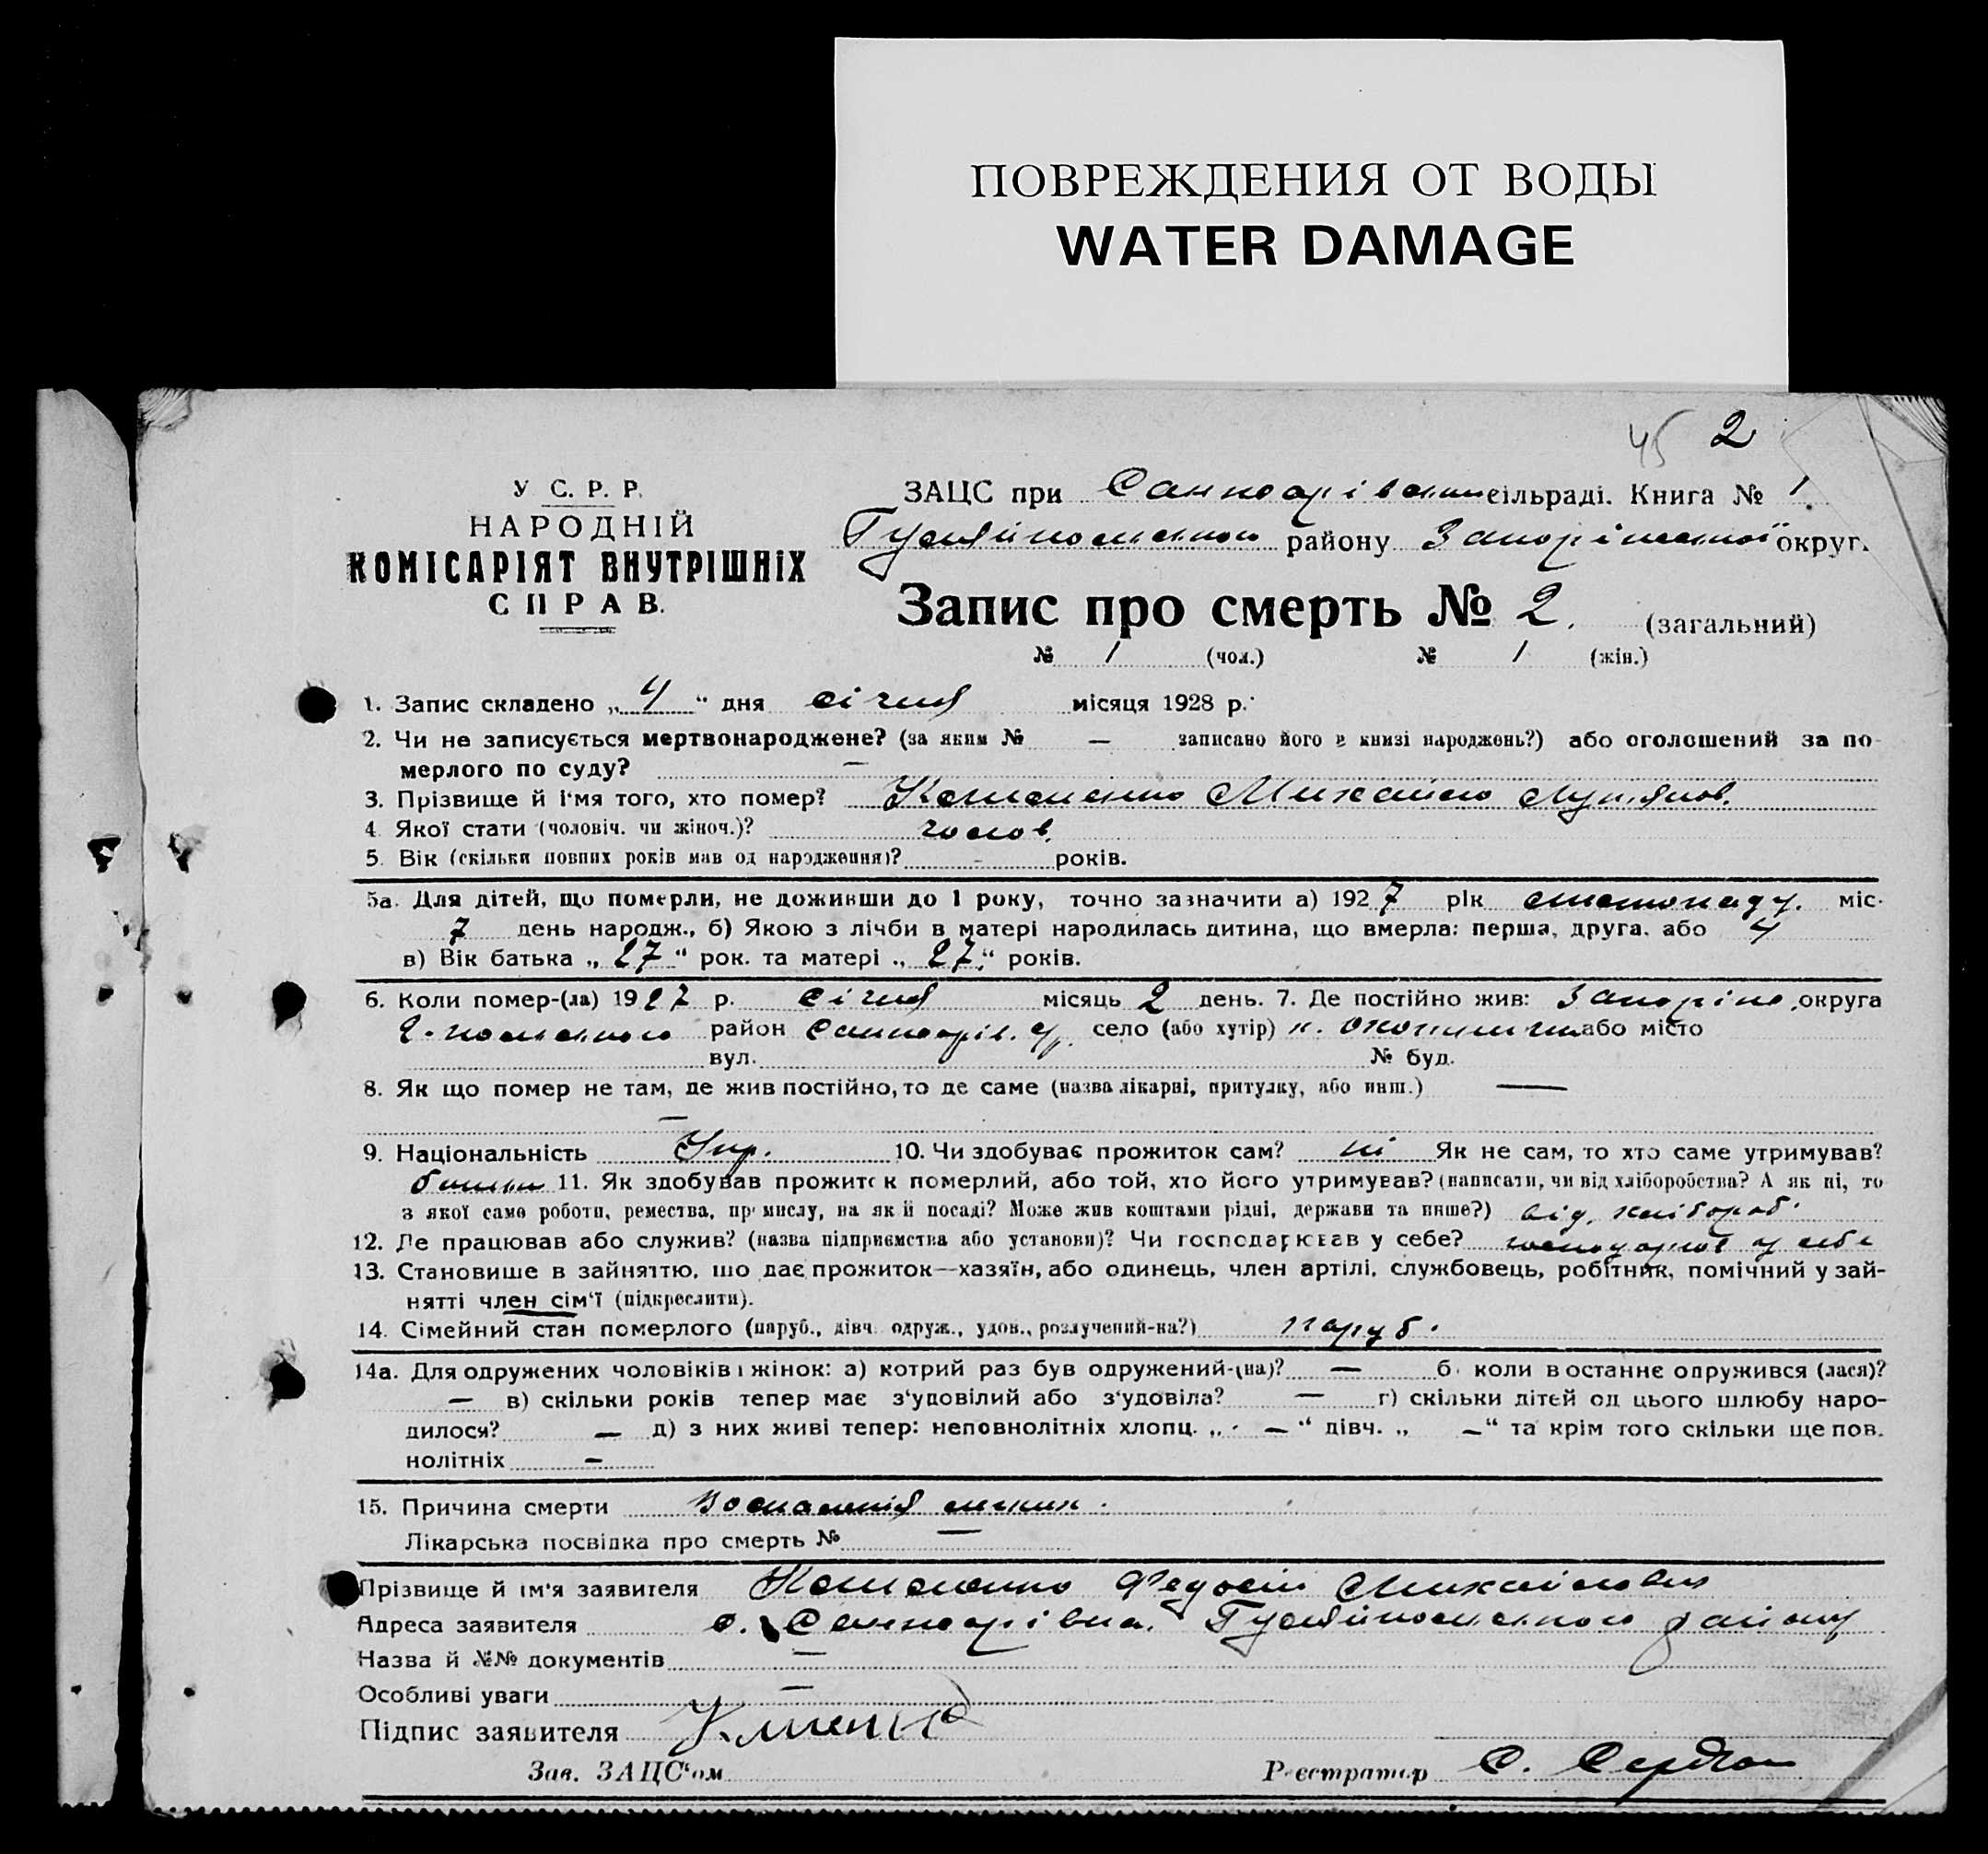 ПОВРЕЖДЕНИЯ ОТ ВОДЫ
WATER DAMAGE
45 2
У С. Р. Р.
НАРОДНІЙ
КОМІСАРІЯТ ВНУТРІШНІХ
СПРАВ.
ЗАЦС при Санжарівський сільраді. Книга № 1.
Гуляйпольского району Запоріжської округ.
Запис про смерть № 2. (загальний)
№ 1 (чол.) № 1 (жін.)
1. Запис складено „4“ дня січня місяця 1928 р.
2. Чи не записується мертвонароджене? (за яким № — записано його в книзі народжень?) або оголошений за по-
мерлого по суду? —
3. Прізвище й і'мя того, хто помер? Михайло
4. Якої стати (чоловіч. чи жіноч.)? чолов.
5. Вік (скільки повних років мав од народження)? - років.
5а. Для дітей, що померли, не доживши до 1 року, точно зазначити а) 1927 рік листопаду. міс.
7 день народж., б) Якою з лічби в матері народилась дитина, що вмерла: перша, друга, або 4
в) Вік батька „27“ рок. та матері „27“ років.
6. Коли помер-(ла) 1927 р. січня місяць 2 день. 7. Де постійно жив: Запоріж. округа
Г-польського район Санжарів. с/р. село (або хутір) або місто
вул. № буд.
8. Як що помер не там, де жив постійно, то де саме (назва лікарні, притулку, або инш.) —
—
9. Національність Укр. 10. Чи здобуває прожиток сам? ні Як не сам, то хто саме утримував?
батьки 11. Як здобував прожиток померлий, або той, хто його утримував? (написати, чи від хліборобства? А як ні, то
з якої саме роботи, ремества, промислу, на якій посаді? Може жив коштами рідні, держави та инше?) від. хлібороб.
12. Де працював або служив? (назва підприємства або установи)? Чи господарював у себе? у себе
13. Становище в зайняттю, що дає прожиток—хазяїн, або одинець, член артілі, службовець, робітник, помічний у зай-
нятті член сім'ї (підкреслити).
14. Сімейний стан померлого (паруб., дівч. одруж., удов., розлучений-на?) паруб.
14а. Для одружених чоловіків і жінок: а) котрий раз був одружений-(на)? — б) коли востаннє одружився (лася)?
— в) скільки років тепер має з'удовілий або з'удовіла? — г) скільки дітей од цього шлюбу наро-
дилося? — д) з них живі тепер: неповнолітніх хлопц. „ — “ дівч. „ —“ та крім того скільки ще пов.
нолітніх —
15. Причина смерти Воспаленія легких.
Лікарська посвідка про смерть № —
Прізвище й ім'я заявителя Федосій Михайлович
Адреса заявителя с. Санжарівка. Гуляйпольского району
Назва й №№ документів —
Особливі уваги —
Підпис заявителя
Зав. ЗАЦС'ом Реєстратор С.